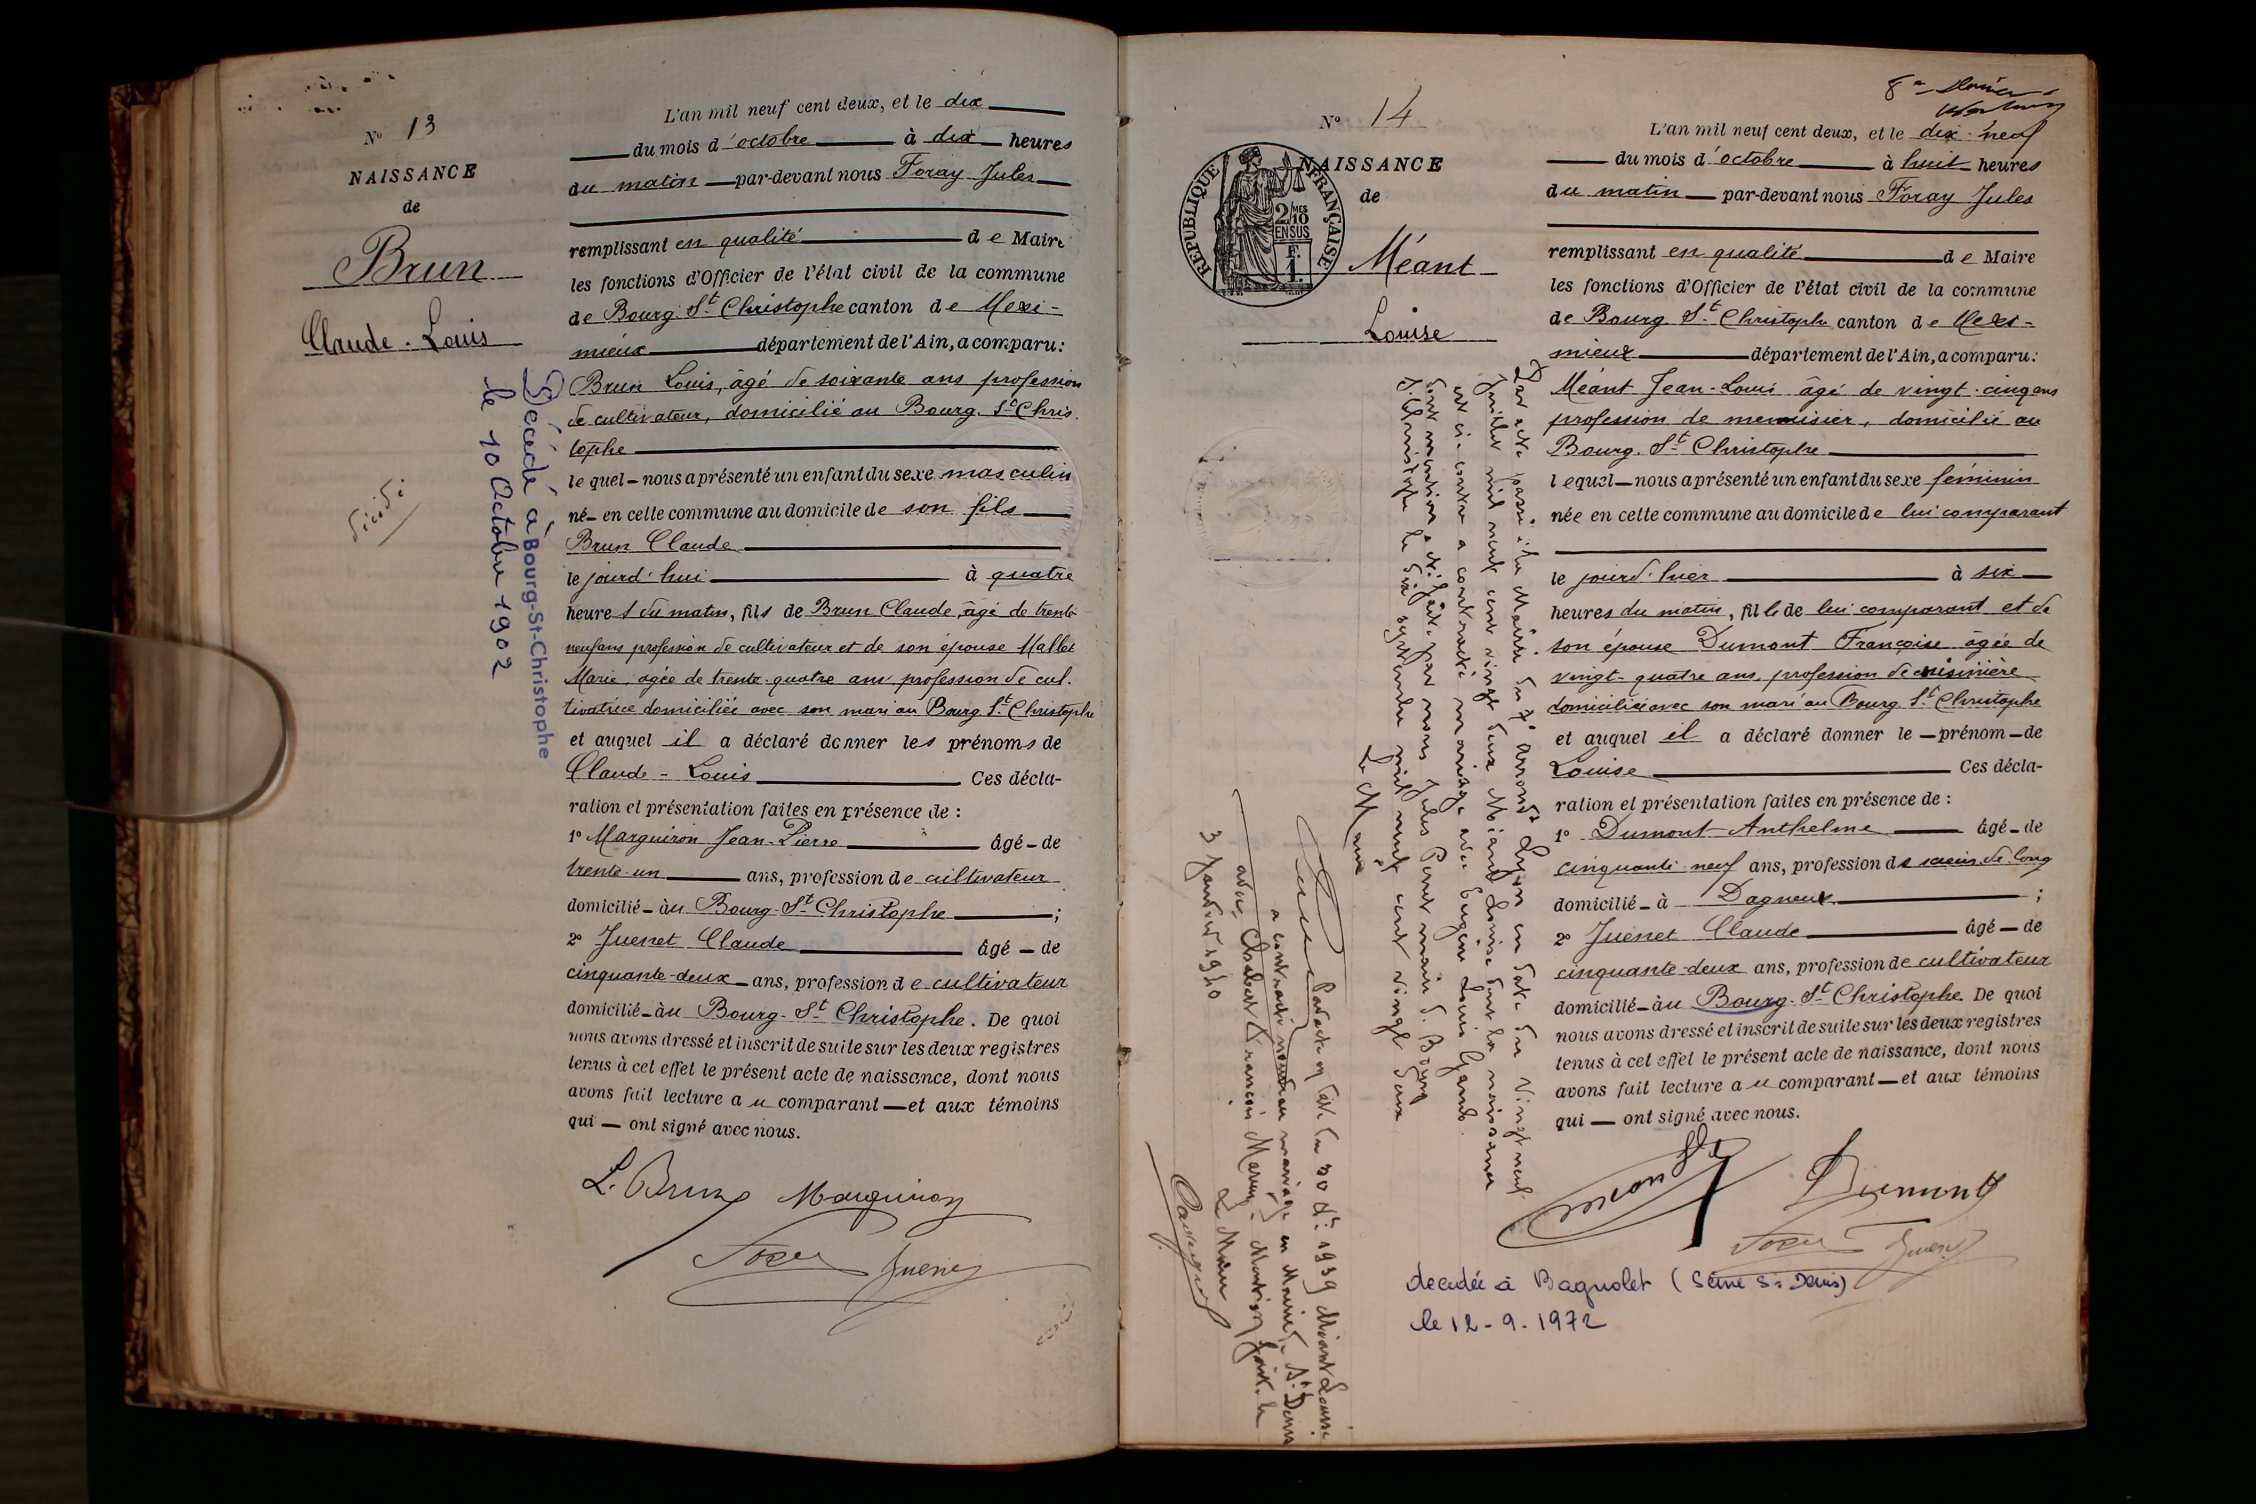 N° 13
NAISSANCE
de
Brun
Claude-Louis
décédé
Décédé à Bourg-St-Christophe
le 10 Octobre 1902
L'an mil neuf cent deux, et le dix
du mois d'octobre à dix heures
du matin par-devant nous Foray Jules
remplissant en qualité de Maire
les fonctions d'Officier de l'état civil de la commune
de Bourg-St-Christophe canton de Mexi-
mieux département de l'Ain, a comparu:
Brun Louis, âgé de soixante ans profession
de cultivateur, domicilié au Bourg-St-Chris
tophe
lequel nous a présenté un enfant du sexe masculin
né en cette commune au domicile de son fils
Brun Claude
le jourd'hui à quatre
heures du matin, fils de Brun Claude, âgé de trente
neuf ans profession de cultivateur et de son épouse Mallet
Marie, âgée de trente-quatre ans profession de cul-
tivatrice domiciliée avec son mari au Bourg-St-Christophe
et auquel il a déclaré donner les prénoms de
Claude-Louis Ces décla-
ration et présentation faites en présence de :
1° Marguiron Jean-Pierre âgé de
trente-un ans, profession de cultivateur
domicilié au Bourg-St-Christophe ;
2° Juenet Claude âgé de
cinquante-deux ans, profession de cultivateur
domicilié au Bourg-St-Christophe. De quoi
nous avons dressé et inscrit de suite sur les deux registres
tenus à cet effet le présent acte de naissance, dont nous
avons fait lecture au comparant et aux témoins
qui ont signé avec nous.
L. Brun Marguiron
Foray Juenet
N° 14
NAISSANCE
de
Méant
Louise
RÉPUBLIQUE FRANÇAISE
2/10 MES
EN SUS
1 F.
L'an mil neuf cent deux, et le dix-neuf
du mois d'octobre à huit heures
du matin par-devant nous Foray Jules
remplissant en qualité de Maire
les fonctions d'Officier de l'état civil de la commune
de Bourg-St-Christophe canton de Mexi-
mieux département de l'Ain, a comparu:
Méant Jean-Louis âgé de vingt-cinq ans
profession de menuisier, domicilié au
Bourg-St-Christophe
lequel nous a présenté un enfant du sexe féminin
née en cette commune au domicile de lui comparant
le jourd'hier à six
heures du matin, fille de lui comparant et de
son épouse Dumont Françoise âgée de
vingt-quatre ans, profession de cuisinière
domiciliée avec son mari au Bourg-St-Christophe
et auquel il a déclaré donner le prénom de
Louise Ces décla-
ration et présentation faites en présence de :
1° Dumont Anthelme âgé de
cinquante-neuf ans, profession de scieur de long
domicilié à Dagneux ;
2° Juenet Claude âgé de
cinquante-deux ans, profession de cultivateur
domicilié au Bourg-St-Christophe. De quoi
nous avons dressé et inscrit de suite sur les deux registres
tenus à cet effet le présent acte de naissance, dont nous
avons fait lecture au comparant et aux témoins
qui ont signé avec nous.
Méant Dumont
Foray Juenet
decedée à Bagnolet (Seine St Denis)
le 12-9-1972
Par acte passé à la Mairie du 7e arrondt Lyon en date du vingt neuf
juillet mil neuf cent vingt deux Méant Louise dont la naissance
est ci-contre a contracté mariage avec Eugène Louis
dont mention a été faite par nous Jules Maire de Bourg
St Christophe le dix septembre mil neuf cent vingt deux
Le Maire
Par acte en date du 30 Dre 1939 Méant Louise
a contracté nouveau mariage en Mairie de St Denis
avec Chabert François Mention faite le
3 Janvier 1940
Le Maire